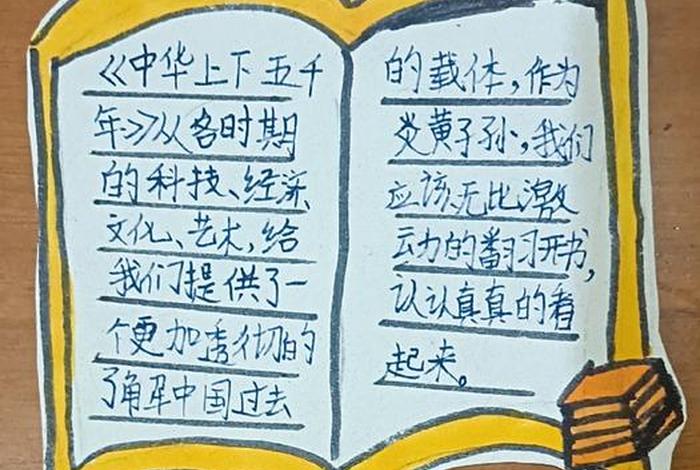 《中华上下五千
年》从各时期
的科技、经济
文化、艺术,给
我们提供了一
个更加透彻的
了解中国过去
的载体,作为
炎黄子孙,我们
应该无比激
动的翻习开书,
认认真真的看
起来。